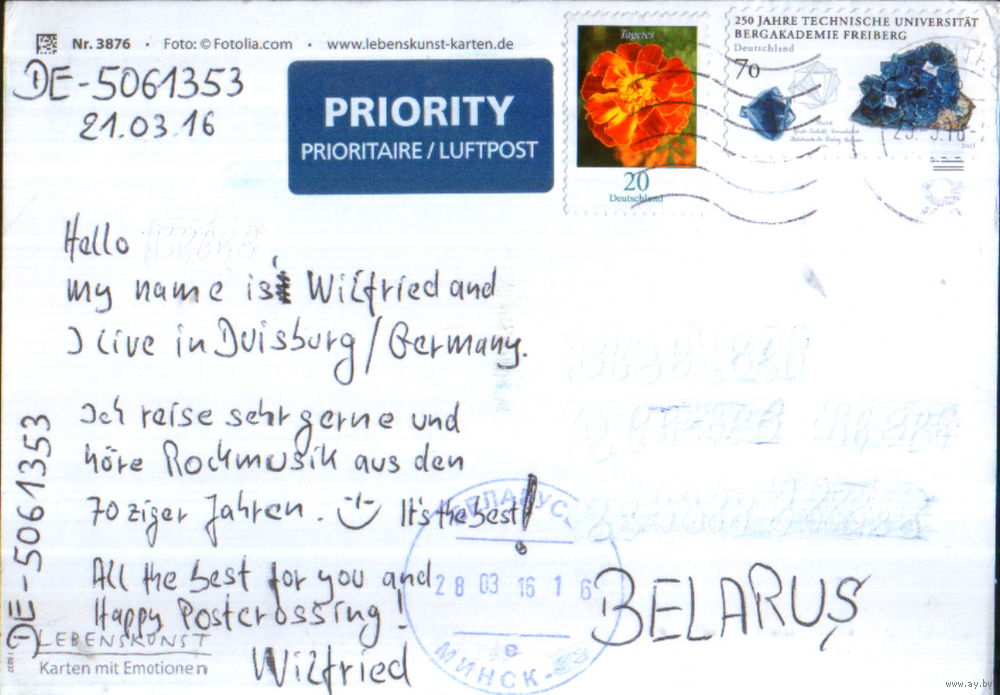 Nr. 3876 • Foto: © Fotolia.com • www.lebenskunst-karten.de
DE-5061353
21.03.16
PRIORITY
PRIORITAIRE / LUFTPOST
Tagetes
20
Deutschland
250 JAHRE TECHNISCHE UNIVERSITÄT
BERGAKADEMIE FREIBERG
Deutschland
70
Hello
my name is Wilfried and
I live in Duisburg / Germany.
Ich reise sehr gerne und
höre Rockmusik aus den
70ziger Jahren. It's the best!
All the best for you and
Happy Postcrossing!
Wilfried
DE-5061353
LEBENSKUNST
Karten mit Emotionen
БЕЛАРУСЬ
28 03 16 16
МИНСК-
BELARUS
www.ay.by